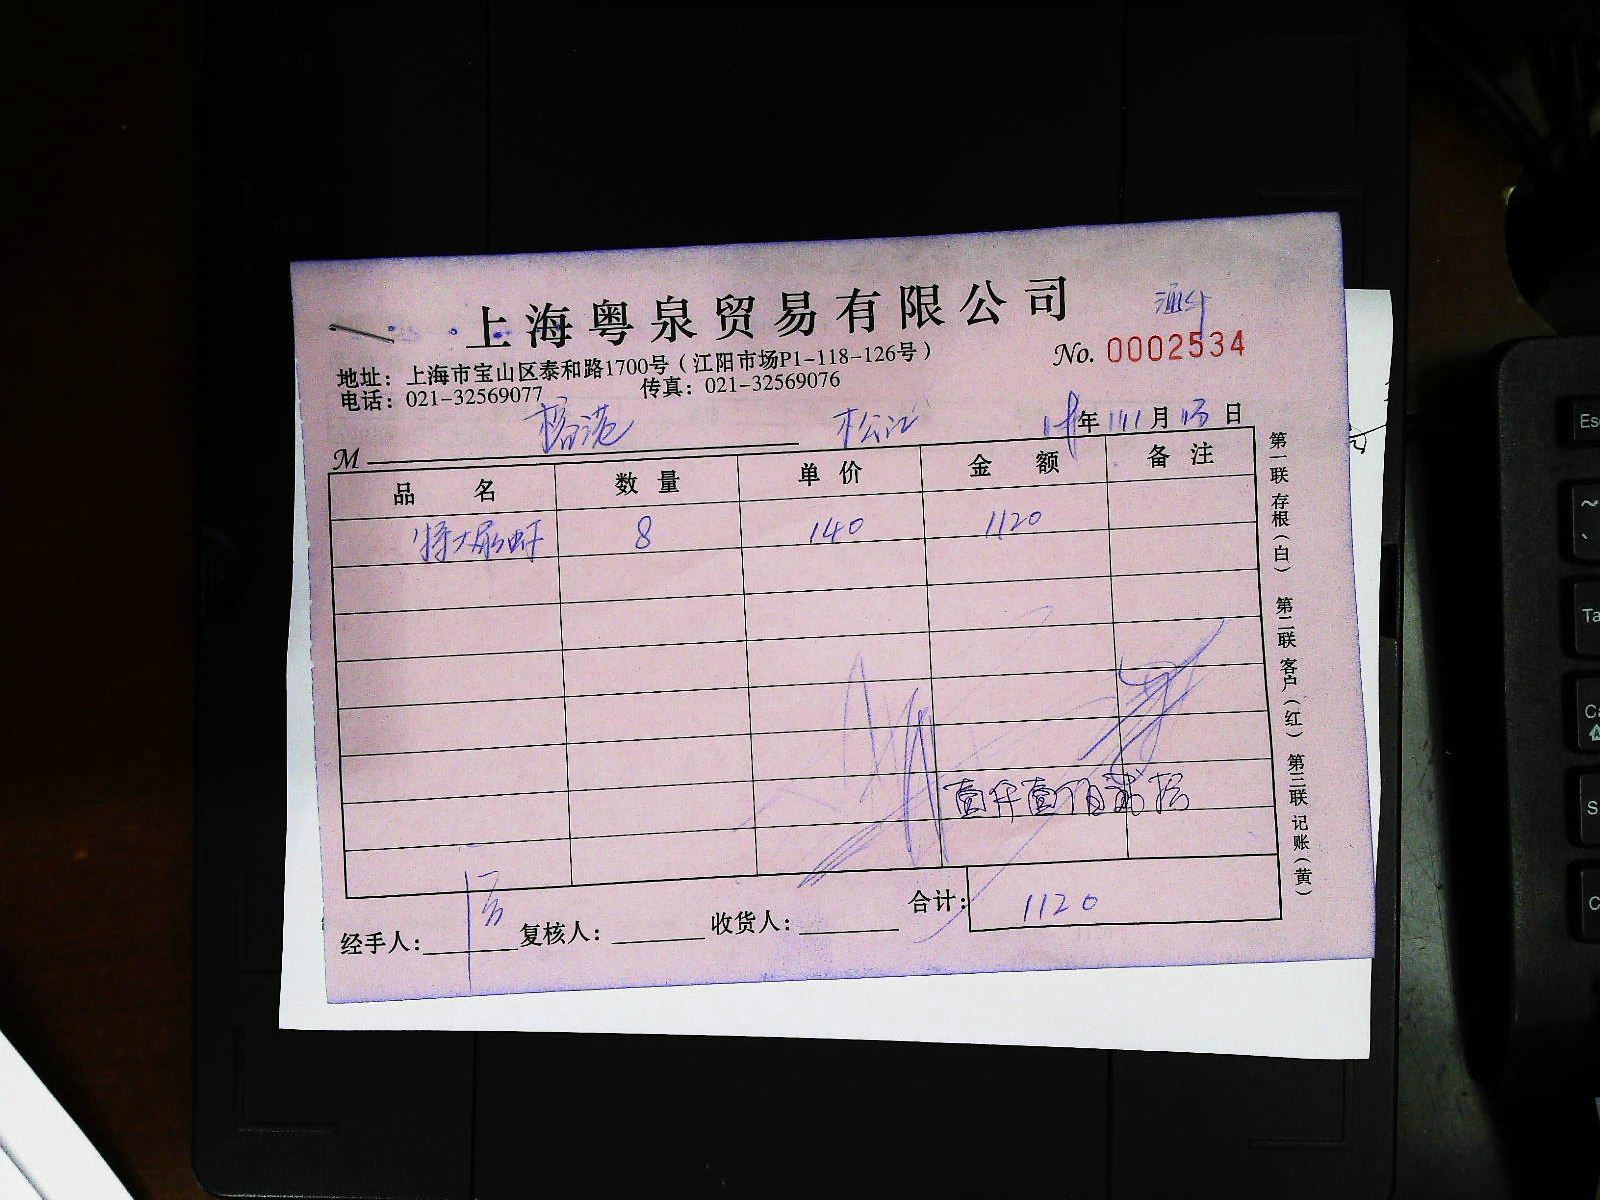 上海粤泉贸易有限公司
No. 0002534
地址：上海市宝山区泰和路1700号（江阳市场P1-118-126号）
电话：021-32569077 传真：021-32569076
港 松江
年 月 日
M
品名 数量 单价 金额 备注
特大尿虾 8 140 1120
壹仟壹佰贰拾
合计： 1120
经手人： 复核人： 收货人：
第一联 存根（白） 第二联 客户（红） 第三联 记账（黄）
Esc
~